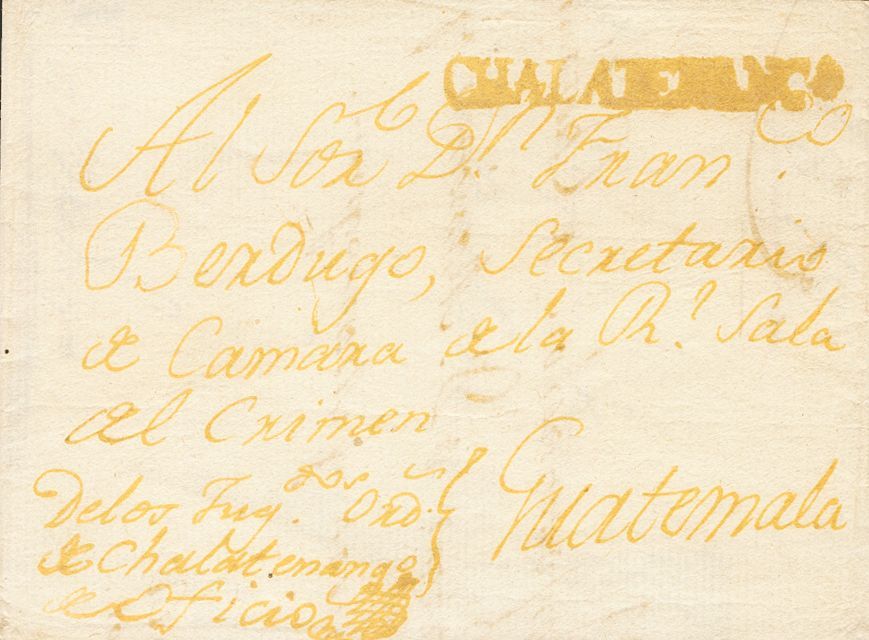 CHALATENANGO
Al Sor. Dn. Franco.
Berdugo, Secretario
de Camara de la Rl. Sala
del Crimen
Guatemala
De los Juzgdos. Ord.
de Chalatenango
de Oficio